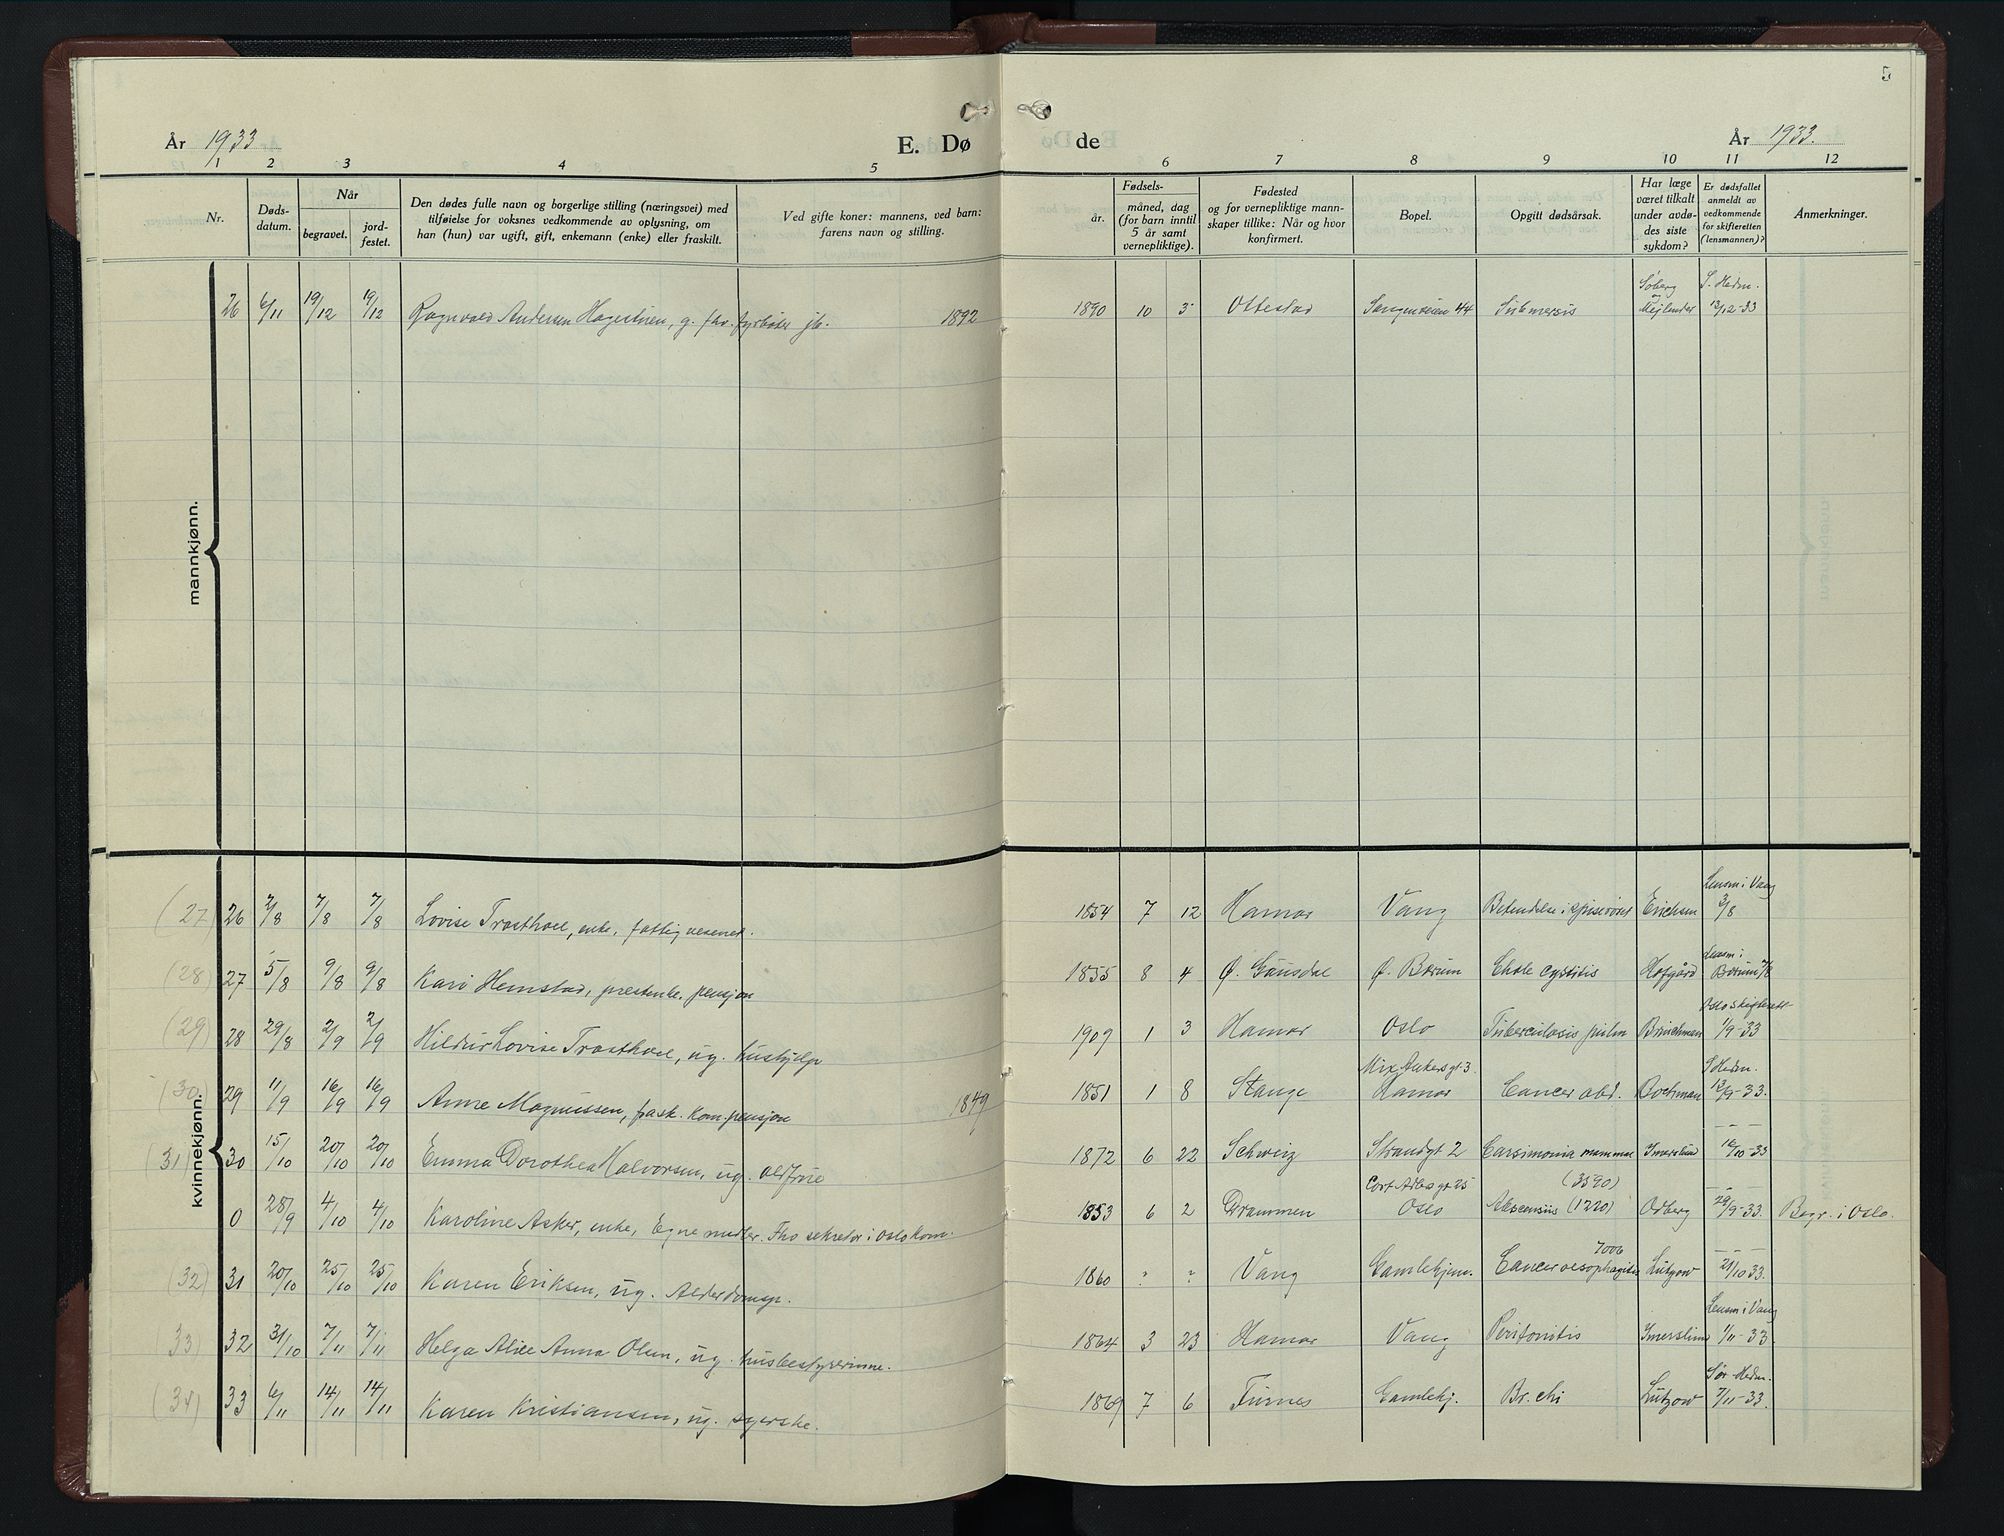 5
År 1933
E. Dø
de
År 1933.
1 2 3 4 5 6 7 8 9 10 11 12
Nr.
Døds-
datum.
Når
begravet.
jord-
festet.
Den dødes fulle navn og borgerlige stilling (næringsvei) med
tilføielse for voksnes vedkommende av oplysning, om
han (hun) var ugift, gift, enkemann (enke) eller fraskilt.
Ved gifte koner: mannens, ved barn:
farens navn og stilling.
Fødsels-
år.
måned, dag
(for barn inntil
5 år samt
vernepliktige).
Fødested
og for vernepliktige mann-
skaper tillike: Når og hvor
konfirmert.
Bopel.
Opgitt dødsårsak.
Har læge
været tilkalt
under avdø-
des siste
sykdom?
Er dødsfallet
anmeldt av
vedkommende
for skifteretten
(lensmannen)?
Anmerkninger.
mannkjønn.
Søberg S. Hedm.
26 6/11 19/12 19/12 Ragnvald Andersen Hagestuen, g. fhv. fyrbøter jb. 1892 1890 10 3 Ottestad Sangenveien 44 Submersis Mejlender 13/12-33
kvinnekjønn.
Lensm i Vang
(27) 26 2/8 7/8 7/8 Lovise Trosthoel, enke, fattigvesenet. 1854 7 12 Hamar Vang Betendelse i spiserøret Erichsen 3/8
Lensm i
(28) 27 5/8 9/8 9/8 Kari Hemstad, prestenke. pensjon 1855 8 4 Ø. Gausdal Ø. Bærum Chole cystitis Hofgård Bærum 7/8
Oslo skifterett
(29) 28 29/8 2/9 2/9 Hildur Lovise Trosthoel, ug. hushjelp 1909 1 3 Hamar Oslo Tuberculosis pulm Brinchman 1/9-33
Mix Ankersgt. 3. S Hedm.
(30) 29 11/9 16/9 16/9 Anne Magnussen, frask. kom. pensjon 1849 1851 1 8 Stange Hamar Cancer abd. Bochman 12/9-33.
(31) 30 15/10 20/10 20/10 Emma Dorothea Halvorsen, ug. oldfrue 1872 6 22 Schweiz Strandgt 2 Carsimonia mammae Imerslund 16/10-33
Cort Adlesgt 25 (3590)
0 28/9 4/10 4/10 Karoline Asker, enke, Egne midler. Fhv sekretær i Oslo kom. 1853 6 2 Drammen Oslo (1220) Odberg 29/9-33. Begr. i Oslo.
7006
(32) 31 20/10 25/10 25/10 Karen Eriksen, ug. Alderdomsp. 1860 ? ? Vang Gamlehjem. Cancer oesophagitis Lützow 21/10 33.
Lensm i Vang
(33) 32 31/10 7/11 7/11 Helga Alise Anna Olsen, ug. husbestyrerinne. 1864 3 23 Hamar Vang Peritonitis Imerslund 1/11-33
Sør-Hedm.
(34) 33 6/11 14/11 14/11 Karen Kristiansen, ug. syerske. 1869 7 6 Furnes Gamlehj. Br. chi Lützow 7/11-33.